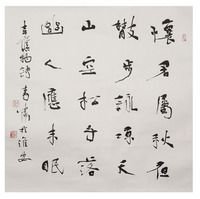 懷君屬秋夜
散步詠涼天
山空松子落
幽人應未眠
韋應物詩